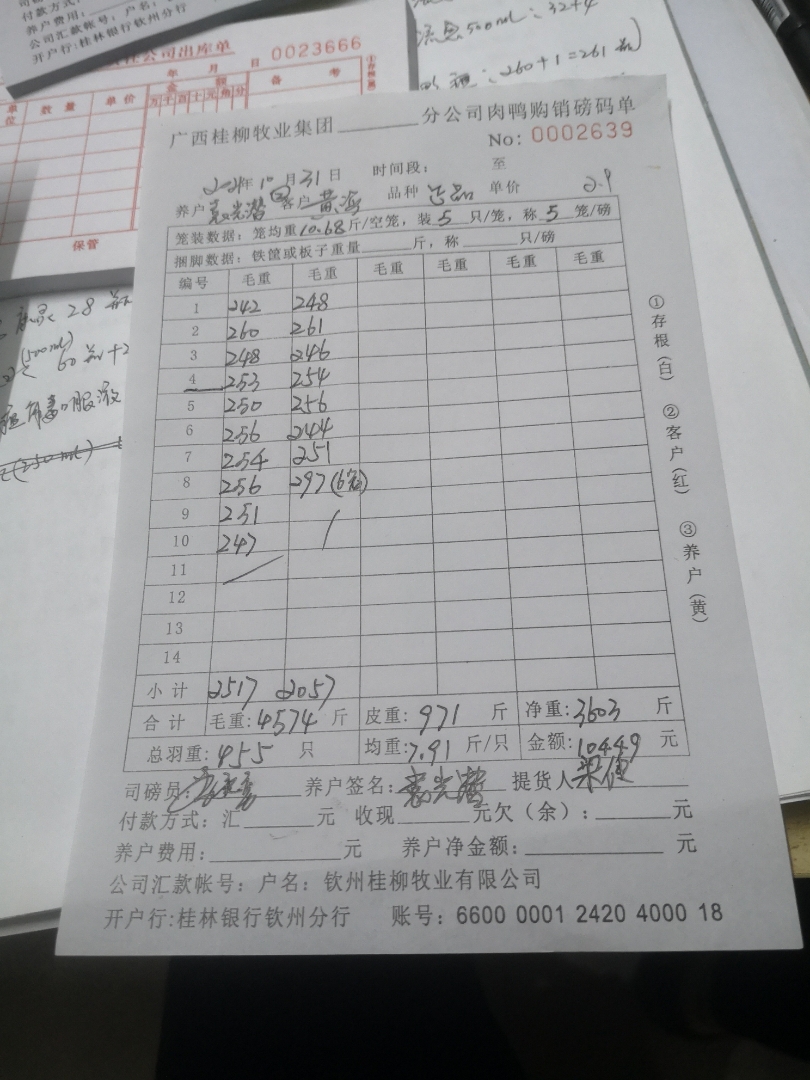 付款方式:
养户费用:
公司汇款帐号: 户名:
开户行:桂林银行钦州分行
公司出库单
0023666
年 月 日
单位 数量 单价 金额 备考
万 千 百 十 元 角 分
保管
流感500ml: 32+4
260+1=261
28
(500ml)
60
口服液
(250ml)
广西桂柳牧业集团________分公司肉鸭购销磅码单
No: 0002639
10月31日 时间段: 至
养户 客户 黄海 品种 正品 单价 2.9
笼装数据: 笼均重10.68斤/空笼, 装5只/笼, 称5笼/磅
捆脚数据: 铁筐或板子重量______斤, 称______只/磅
编号 毛重 毛重 毛重 毛重 毛重 毛重
1 242 248
2 260 261
3 248 246
4 253 254
5 250 256
6 256 244
7 254 251
8 256 297(6笼)
9 251
10 247
11
12
13
14
小计 2517 2057
合计 毛重:4574 斤 皮重:971 斤 净重:3603 斤
总羽重:455 只 均重:7.91 斤/只 金额:10449 元
司磅员: 养户签名: 提货人
付款方式: 汇______元 收现______元欠(余):______元
养户费用:__________元 养户净金额:__________元
公司汇款帐号: 户名: 钦州桂柳牧业有限公司
开户行:桂林银行钦州分行 账号: 6600 0001 2420 4000 18
①存根(白) ②客户(红) ③养户(黄)